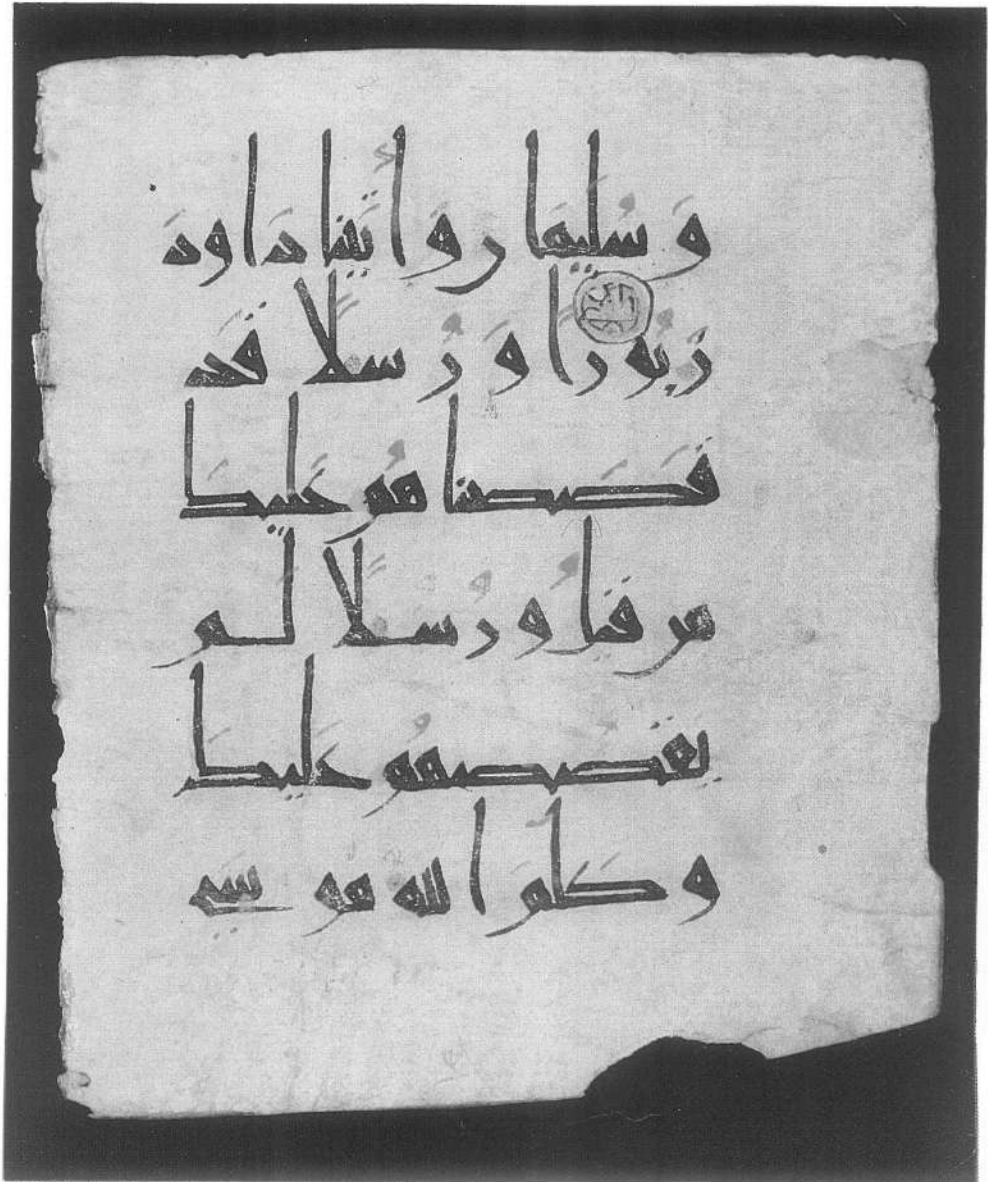 وَسُلَيمَٰنَ وَأَتَينَا دَاوُدَ
زَبُورًا وَرُسُلًا قَد
قَصَصنَاهُم عَلَيكَ
مِن قَبلُ وَرُسُلًا لَم
نَقصُصهُم عَلَيكَ
وَكَلَّمَ اللهُ مُوسَى